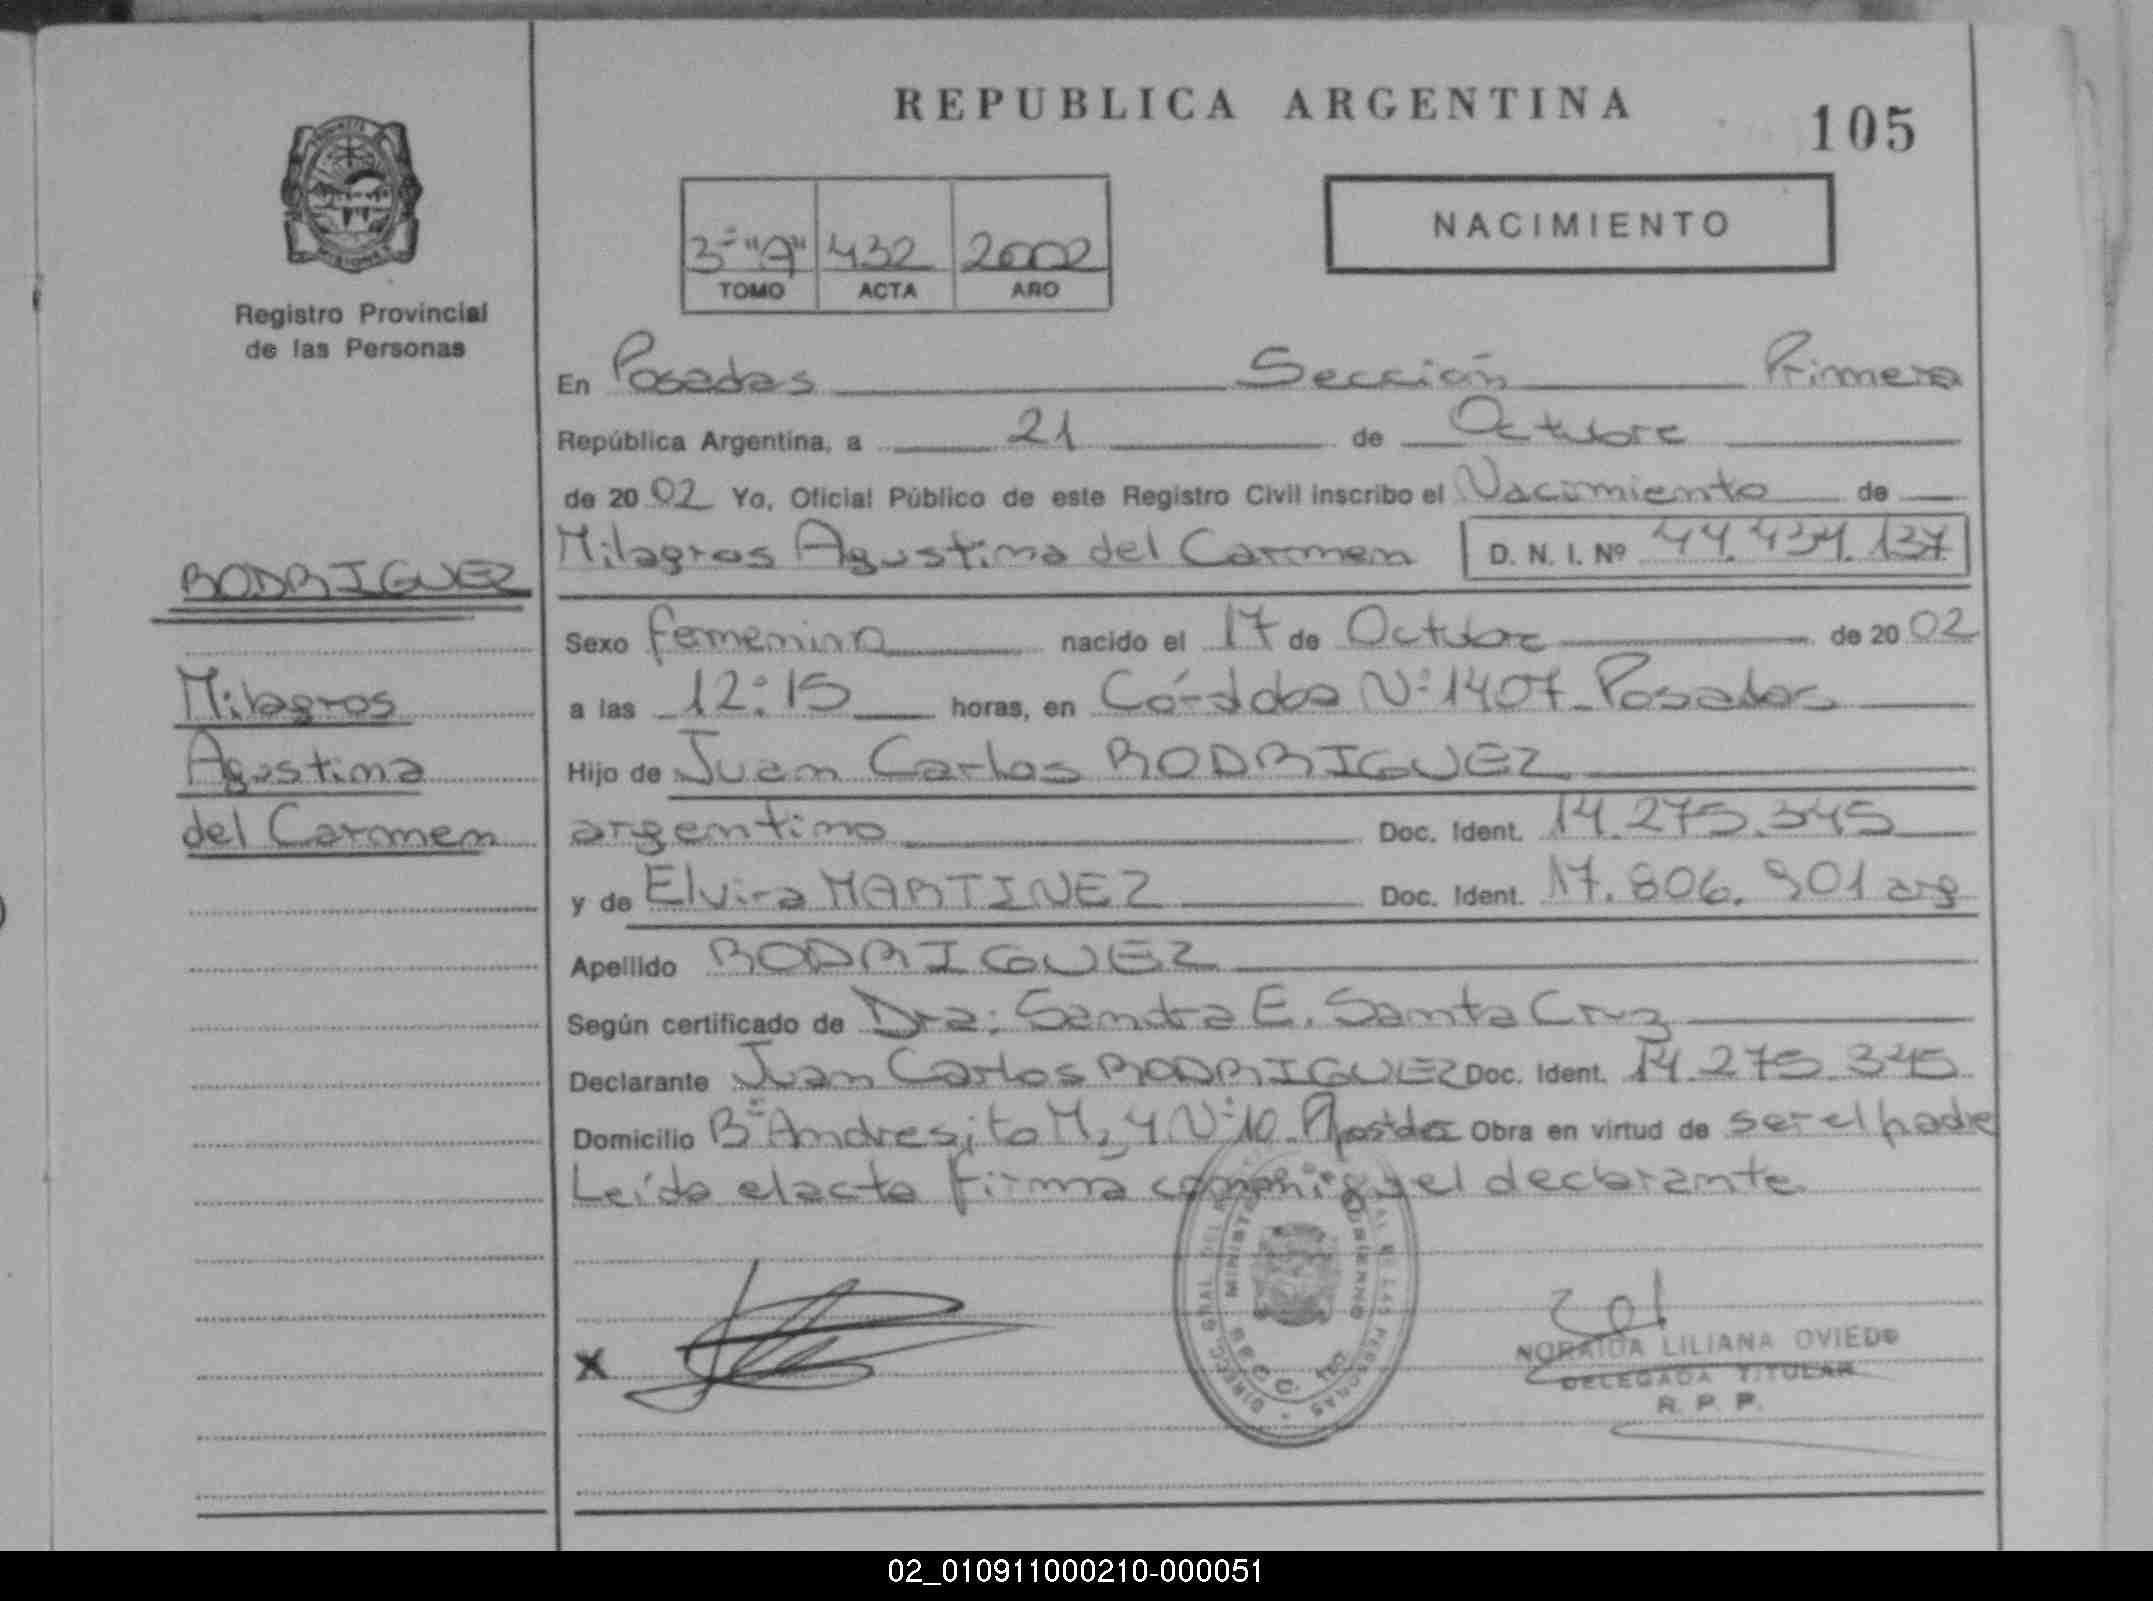 REPUBLICA ARGENTINA
105
NACIMIENTO
3º "A" 432 2002
TOMO ACTA AÑO
Registro Provincial
de las Personas
En Posadas Sección Primera
República Argentina, a 21 de Octubre
de 2002 Yo, Oficial Público de este Registro Civil inscribo el Nacimiento de
Milagros Agustina del Carmen D. N. I. Nº 44.434.137
RODRIGUEZ
Milagros
Agustina
del Carmen
Sexo femenino nacido el 17 de Octubre de 2002
a las 12:15 horas, en Córdoba Nº 1407 - Posadas
Hijo de Juan Carlos RODRIGUEZ
argentino Doc. Ident. 14.275.345
y de Elvira MARTINEZ Doc. Ident. 17.806.901 arg
Apellido RODRIGUEZ
Según certificado de Dra: Sandra E. Santa Cruz
Declarante Juan Carlos RODRIGUEZ Doc. Ident. 14.275.345
Domicilio Bº Andresito Mz 4 Nº 10 - Obra en virtud de ser el padre
Leída el acta firma conmigo el declarante
X
NORAIDA LILIANA OVIEDO
DELEGADA TITULAR
R. P. P.
02_010911000210-000051